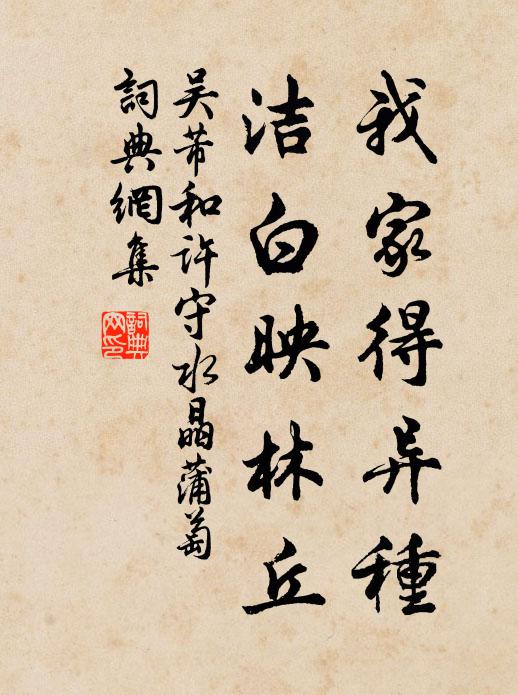 我家得异種
洁白映林丘
吴芾和許守水晶蒲萄
詞典網集
詞典網印